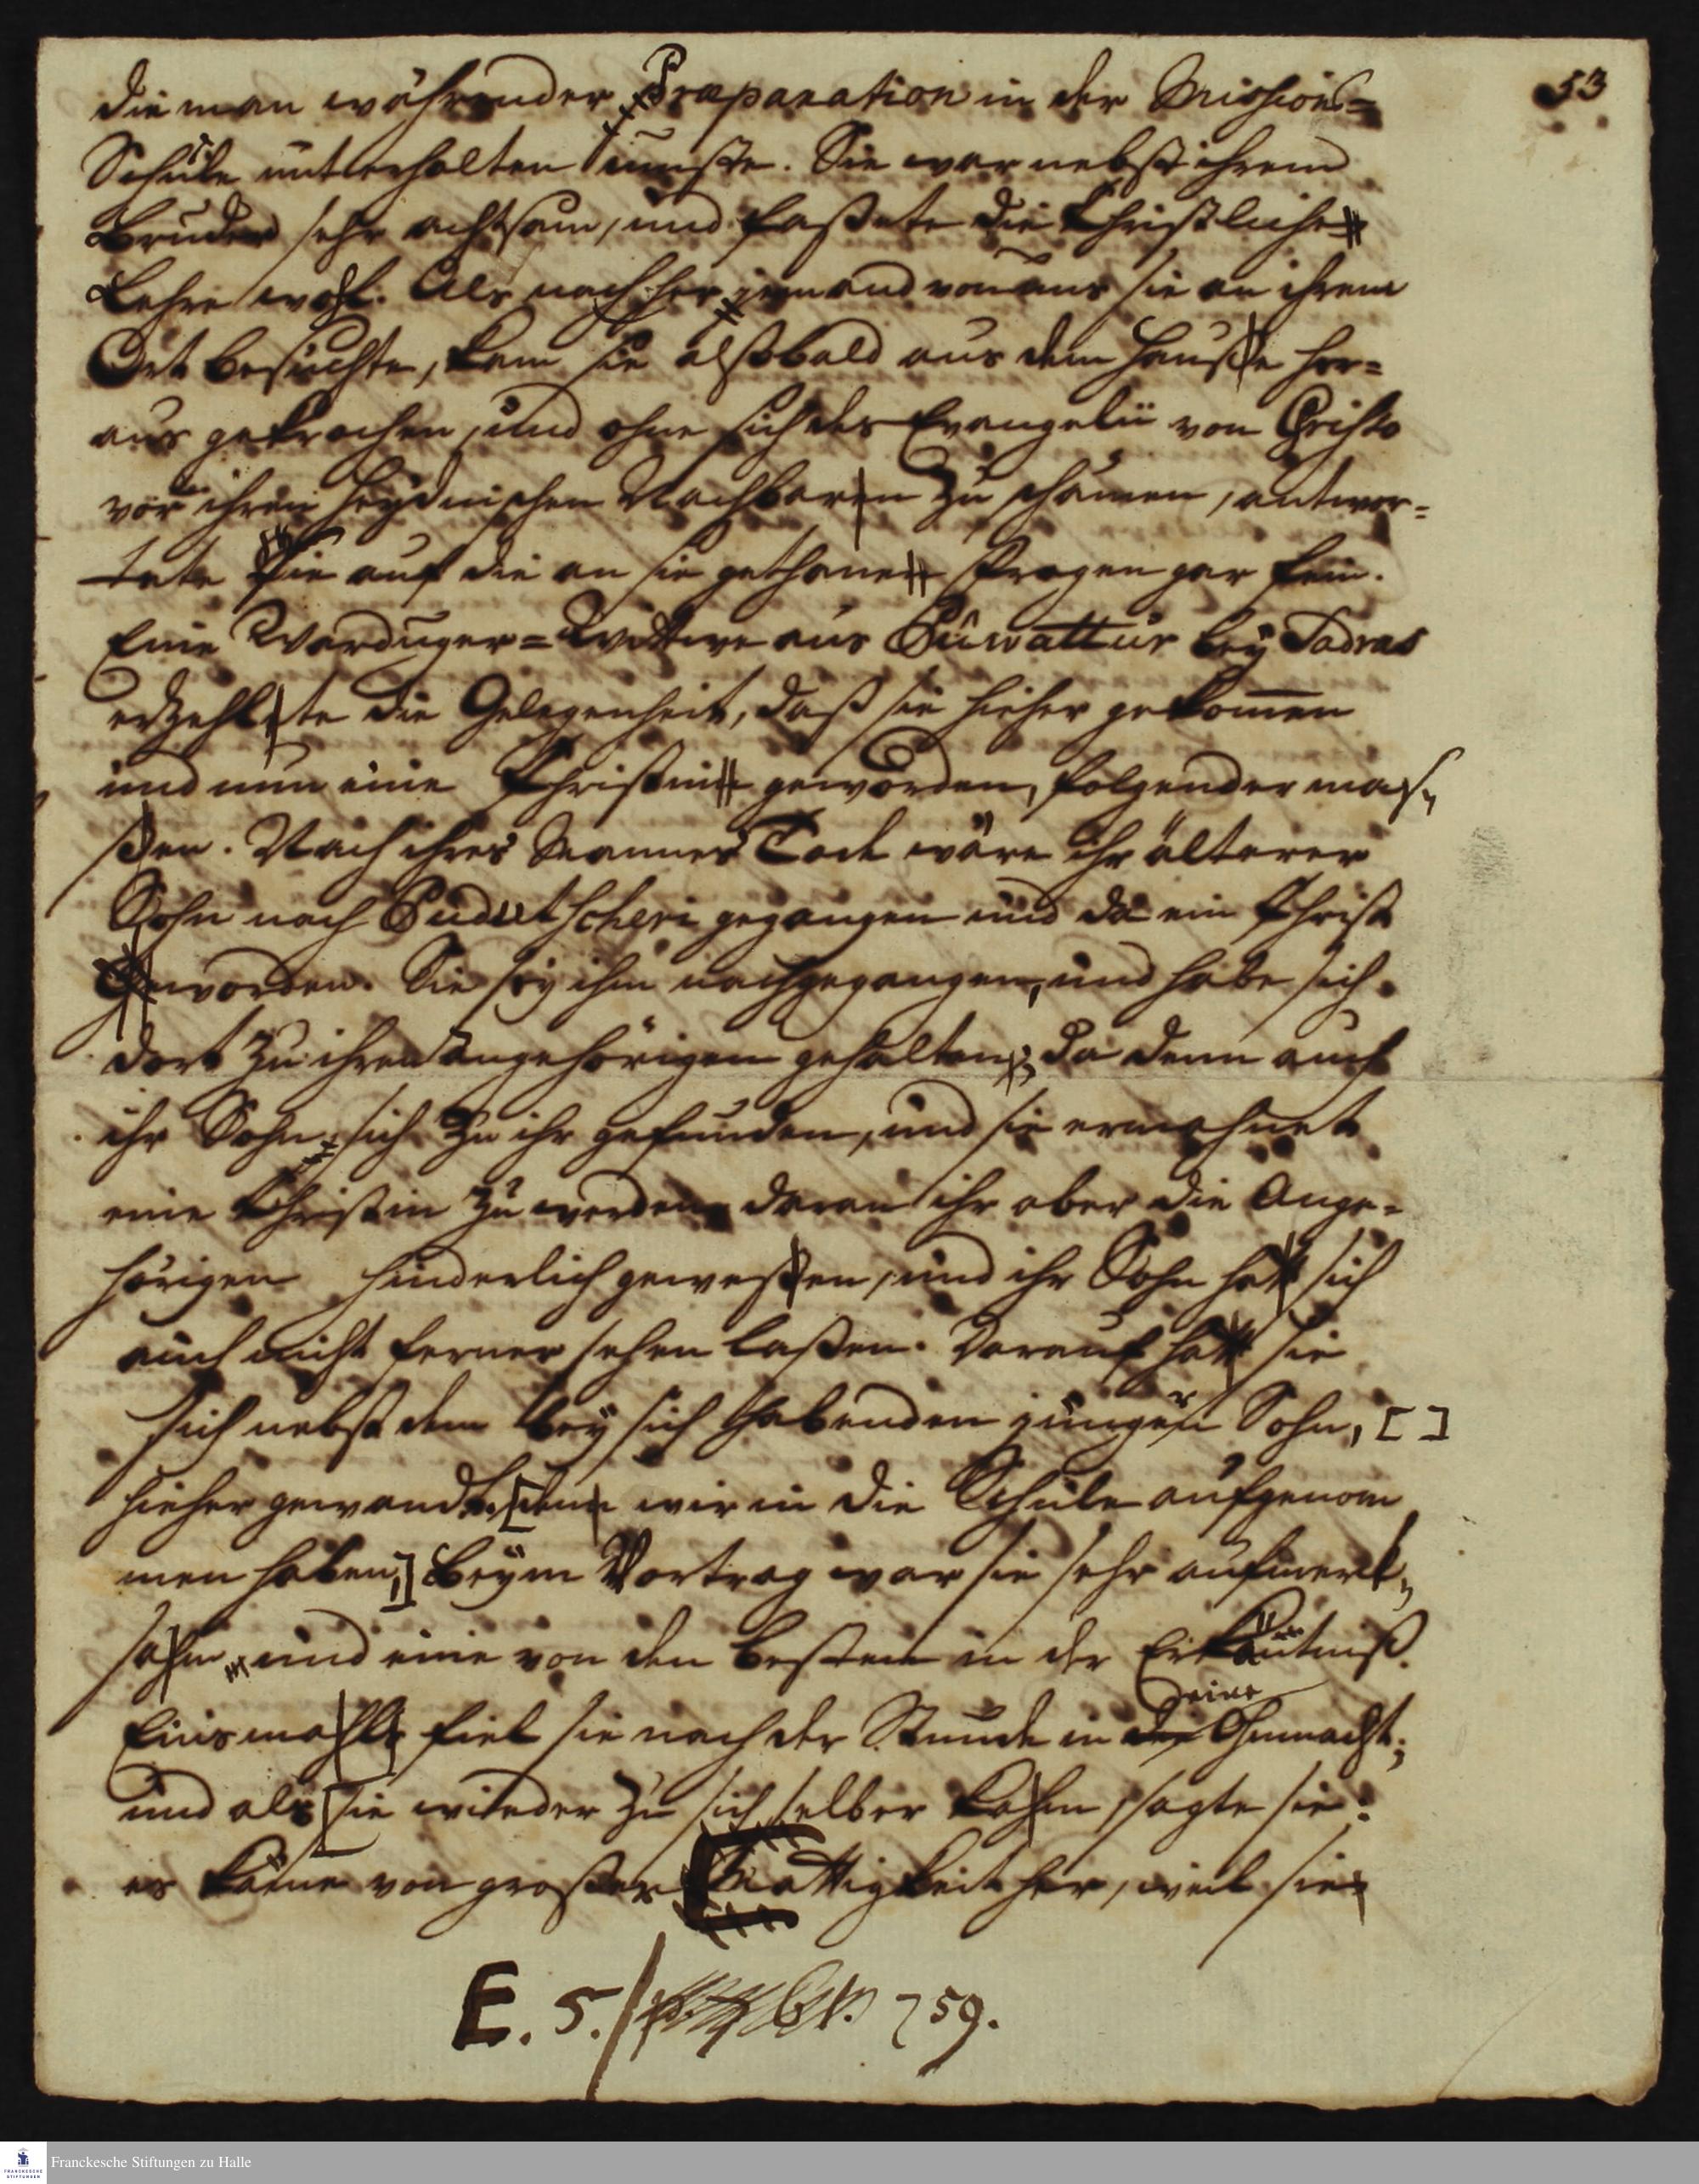 53
die man währender Præparation in der Missions=
Schule unterhalten muste. Sie war nebst ihrem
Bruder sehr achtsam, und faßete die Christliche
Lehre wohl. Als nachher jemand von uns sie an ihrem
Ort besuchte, kam sie alßbald aus dem Hauße her=
aus gekrochen, und ohne sich des Evangelii von Christo
vor ihren heydnischen Nachbaren zu schämen, antwor=
tete sie auf die an sie gethane Fragen gar fein.
Eine Warduger=Wittwe aus Puwattur bey Sadras
erzehlete die Gelegenheit, daß sie hieher gekommen
und nun eine Christin geworden, folgender mas„
ßen. Nach ihres Mannes Tode wäre ihr älterer
Sohn nach Pudutscheri gegangen und da ein Christ
geworden. Sie sey ihm nachgegangen, und habe sich
dort zu ihren Angehörigen gehalten; da denn auch
ihr Sohn sich zu ihr gefunden, und sie ermahnet
eine Christin zu werden, daran ihr aber die Ange=
hörigen hinderlich geweßen, und ihr Sohn hätt sich
auch nicht ferner sehen laßen. Darauf hätt sie
sich nebst dem bey sich habenden jungern Sohn, [ ]
hieher gewandt, [den wir in die Schule aufgenom
men haben,] Beym Vortrag war sie sehr aufmerk„
sahm und eine von den besten in der Erkäntniß.
Einsmahls fiel sie nach der Stunde in der Ohnmacht;
eine
und als sie wieder zu sich selber kahm, sagte sie:
es käme von großer Mattigkeit her, weil sie
E. 5. 759.
Franckesche Stiftungen zu Halle